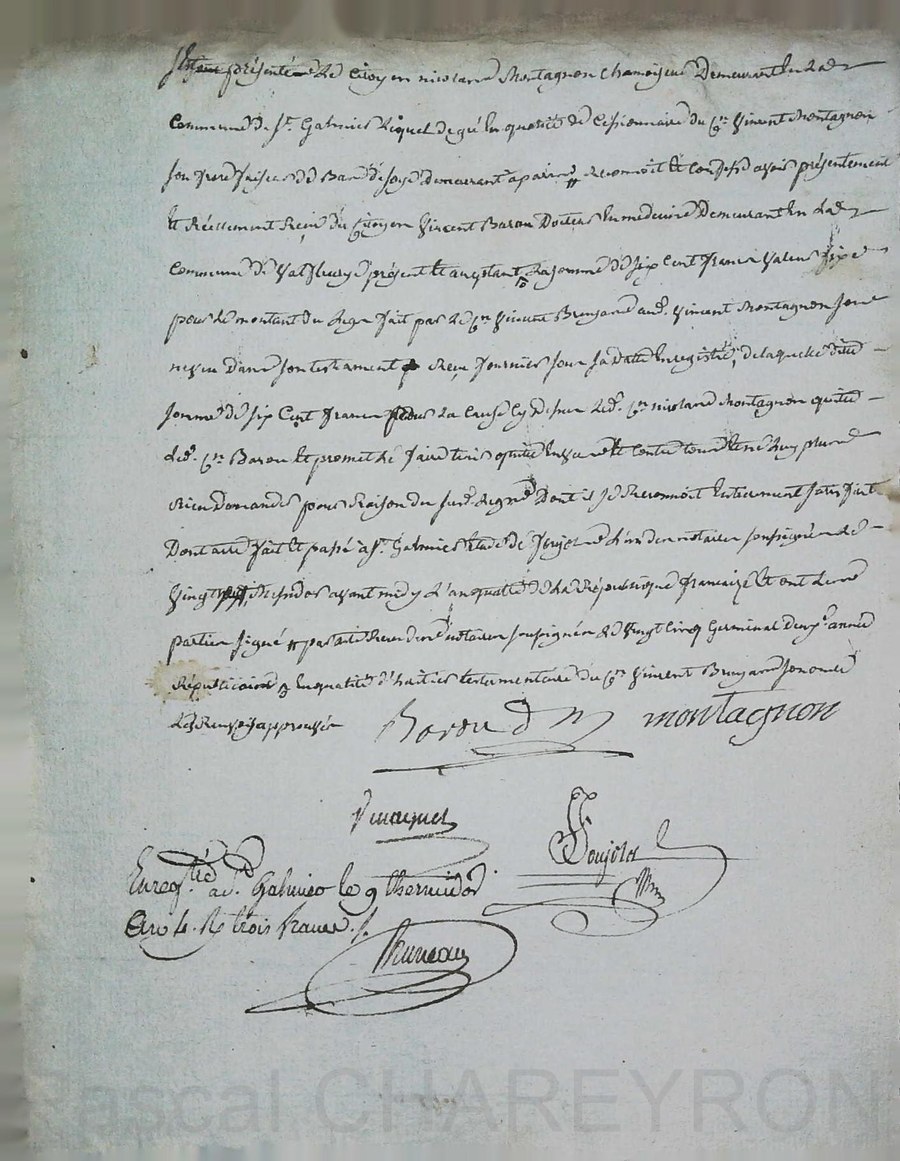 présenté le Citoyen nicolas Montagnon Chamoiseur Demeurant en lad.
Commune de St. Galmier lequel de gré en qualité de Cessionnaire du Cn. Vincent Montagnon
son frere faiseur de Bas de soye demeurant a paris # Reconnoit et Confesse avoir présentement
et Réellement Reçu du Citoyen Vincent Baron Docteur en medecine Demeurant en lad.
Commune de Valfleury présent et acceptant La somme de six Cent francs valeur fixe
pour le montant du legs fait par le Cn Vincent Brujard aud. Vincent Montagnon son
neveu Dans son testament Reçu fournier sous sa Date Enregistré, de laquelle ditte
somme de six Cent francs pour la Cause Cy dessus led. Cn nicolas Montagnon quitte
led. Cn Baron et promet le faire tenir quitte Envers et Contre tous et ne luy plus
Rien Demander pour Raison du susd. legs Dont il se Reconnoit Entierement satisfait
Dont acte fait et passé à St. Galmier Etude de Pujolas l'un des notaires soussignés le
Vingt Messidor avant midy l'an quatre de la République francaize et ont les
parties signé # par acte Reçu des notaires soussignés le Vingt Cinq Germinal année
Républicaine # En qualité d'héritier testamentaire du Cn. Vincent Brujard son oncle
Les Renvoys approuvés
Baron D m montagnon
Pujolas
Enregtré a St. Galmier le 9 thermidor
an 4. R trois francs
Bruneau
Pascal CHAREYRON